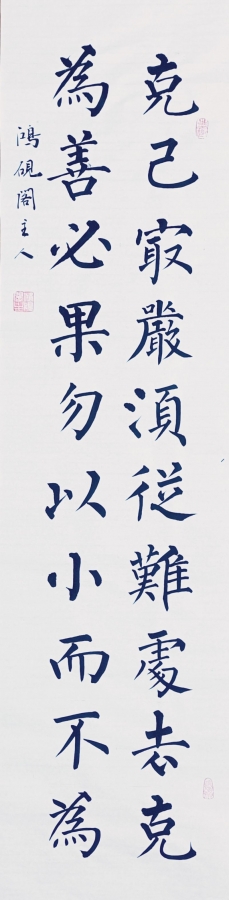 克己冣嚴須從難處去克
為善必果勿以小而不為
鴻硯閣主人